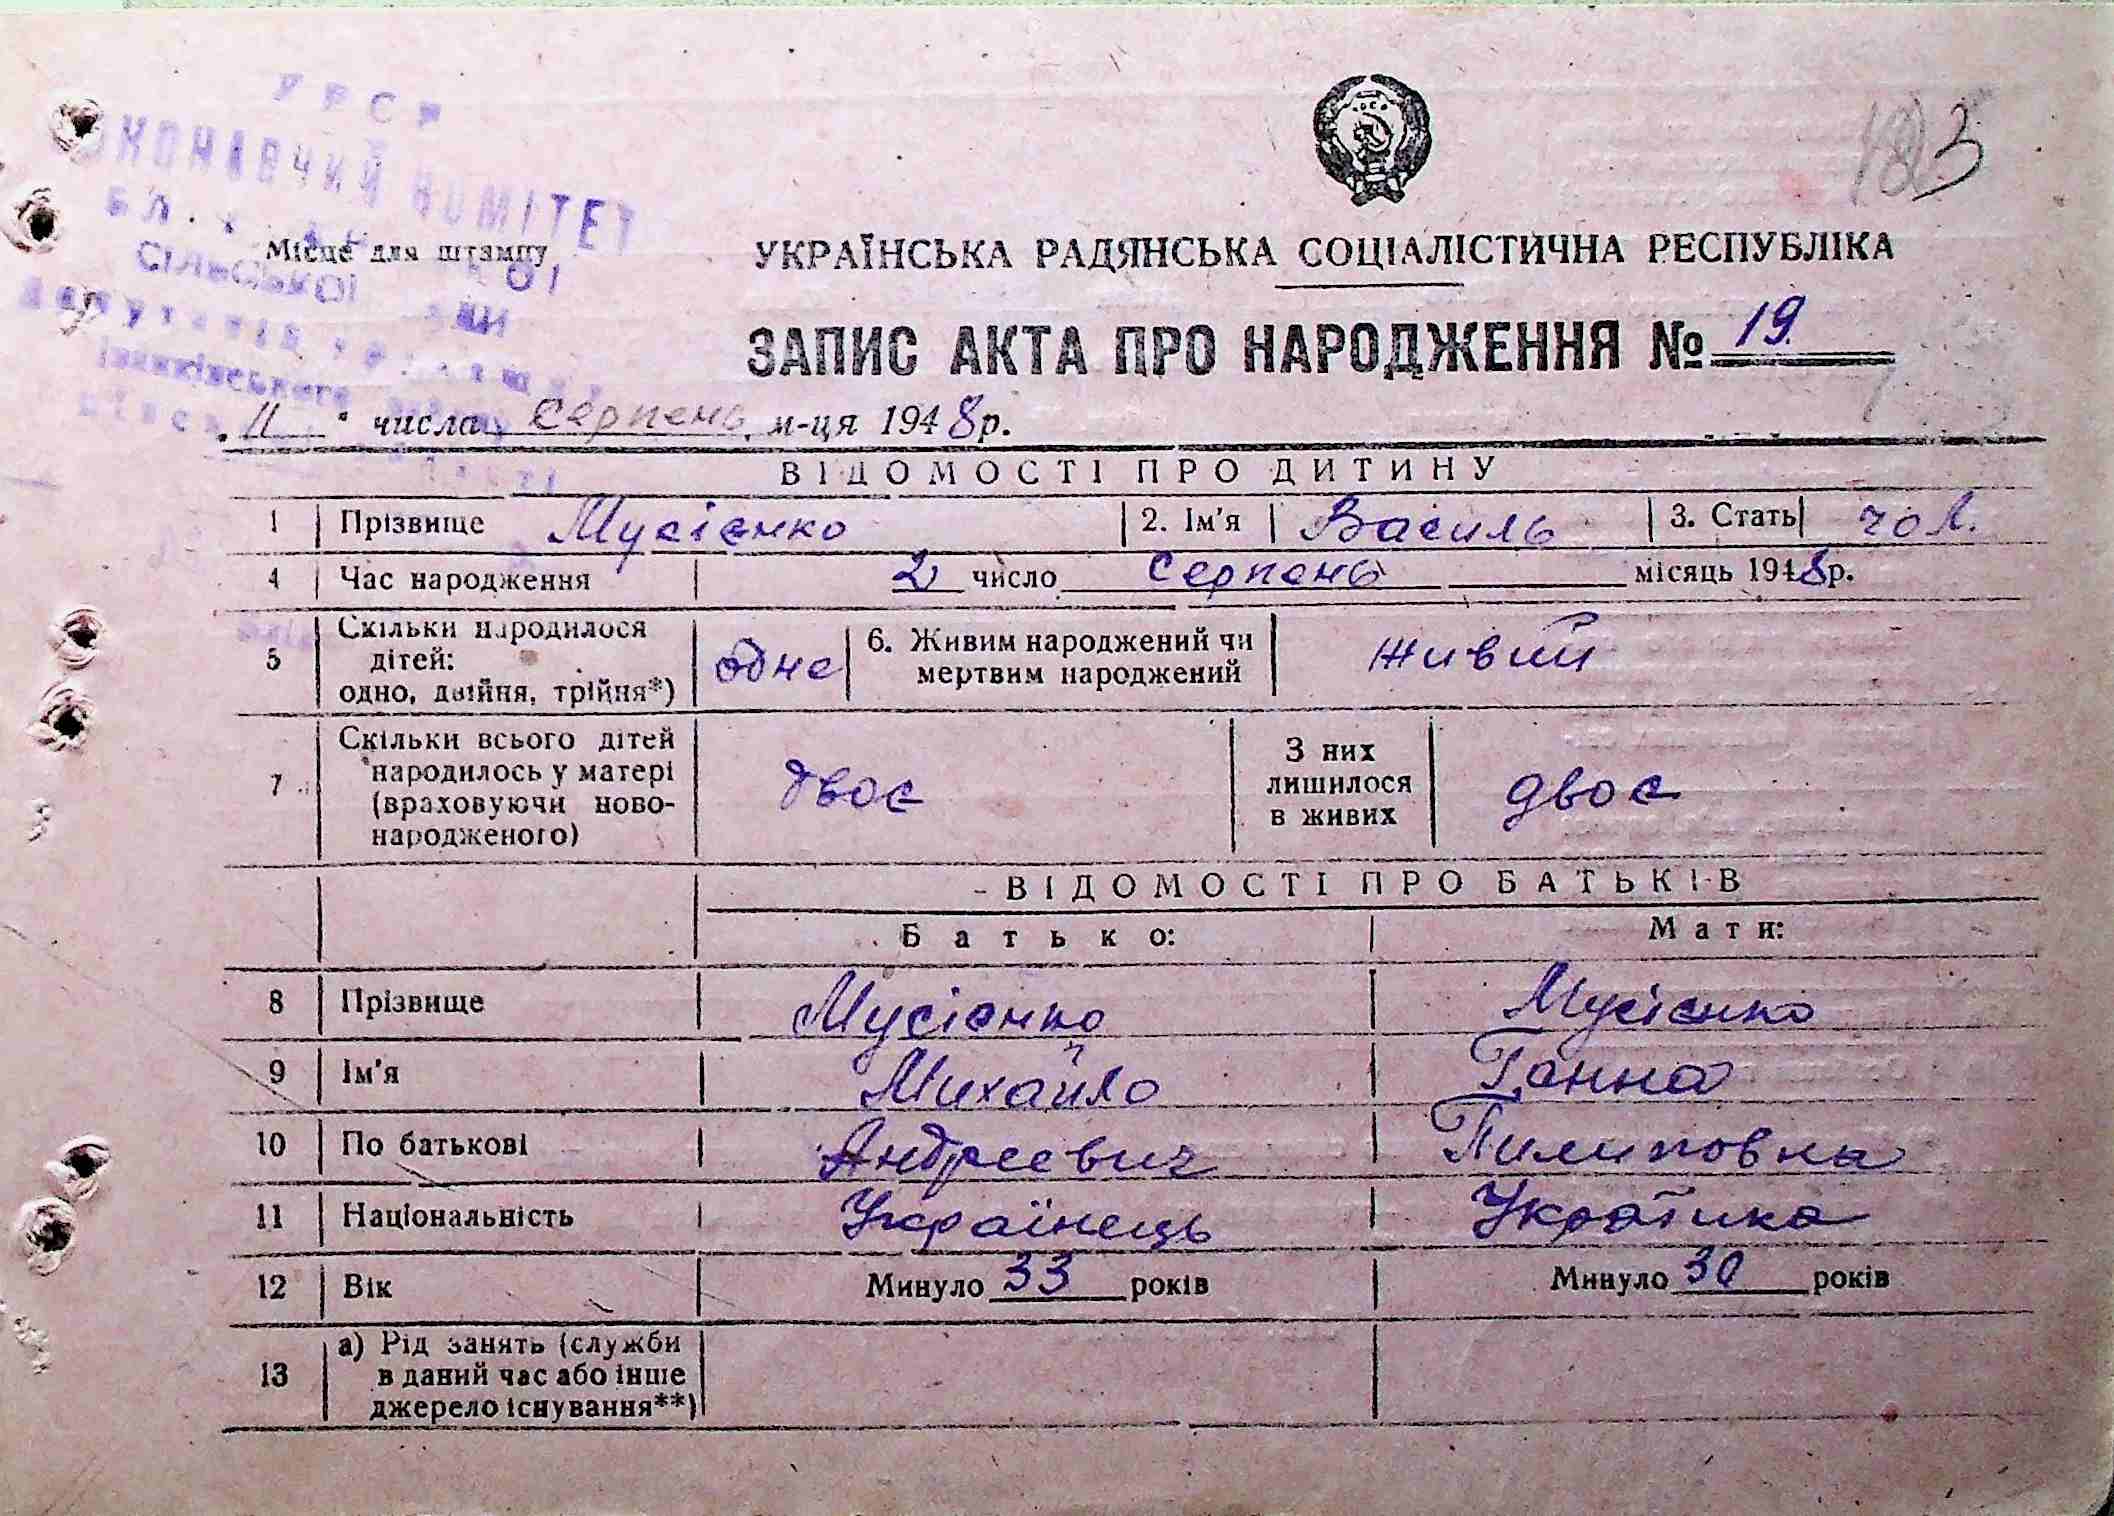 У Р С Р
КОНАВЧИЙ КОМІТЕТ
СІЛЬСЬКОЇ
депутатів
Іванківського
123
Місце для штампу
УКРАЇНСЬКА РАДЯНСЬКА СОЦІАЛІСТИЧНА РЕСПУБЛІКА
ЗАПИС АКТА ПРО НАРОДЖЕННЯ № 19.
„11" числа Серпень м-ця 1948р.
ВІДОМОСТІ ПРО ДИТИНУ
1 Прізвище Мусієнко 2. Ім'я Василь 3. Стать чол.
4 Час народження 2 число Серпень місяць 1948р.
5 Скільки народилося дітей: одно, двійня, трійня*) одне 6. Живим народжений чи мертвим народжений живий
7 Скільки всього дітей народилось у матері (враховуючи ново-народженого) двоє З них лишилося в живих двоє
ВІДОМОСТІ ПРО БАТЬКІВ
Батько: Мати:
8 Прізвище Мусієнко Мусієнко
9 Ім'я Михайло Ганна
10 По батькові Андреевич Пилиповна
11 Національність Українець Українка
12 Вік Минуло 33 років Минуло 30 років
13 а) Рід занять (служби
в даний час або інше
джерело існування**)